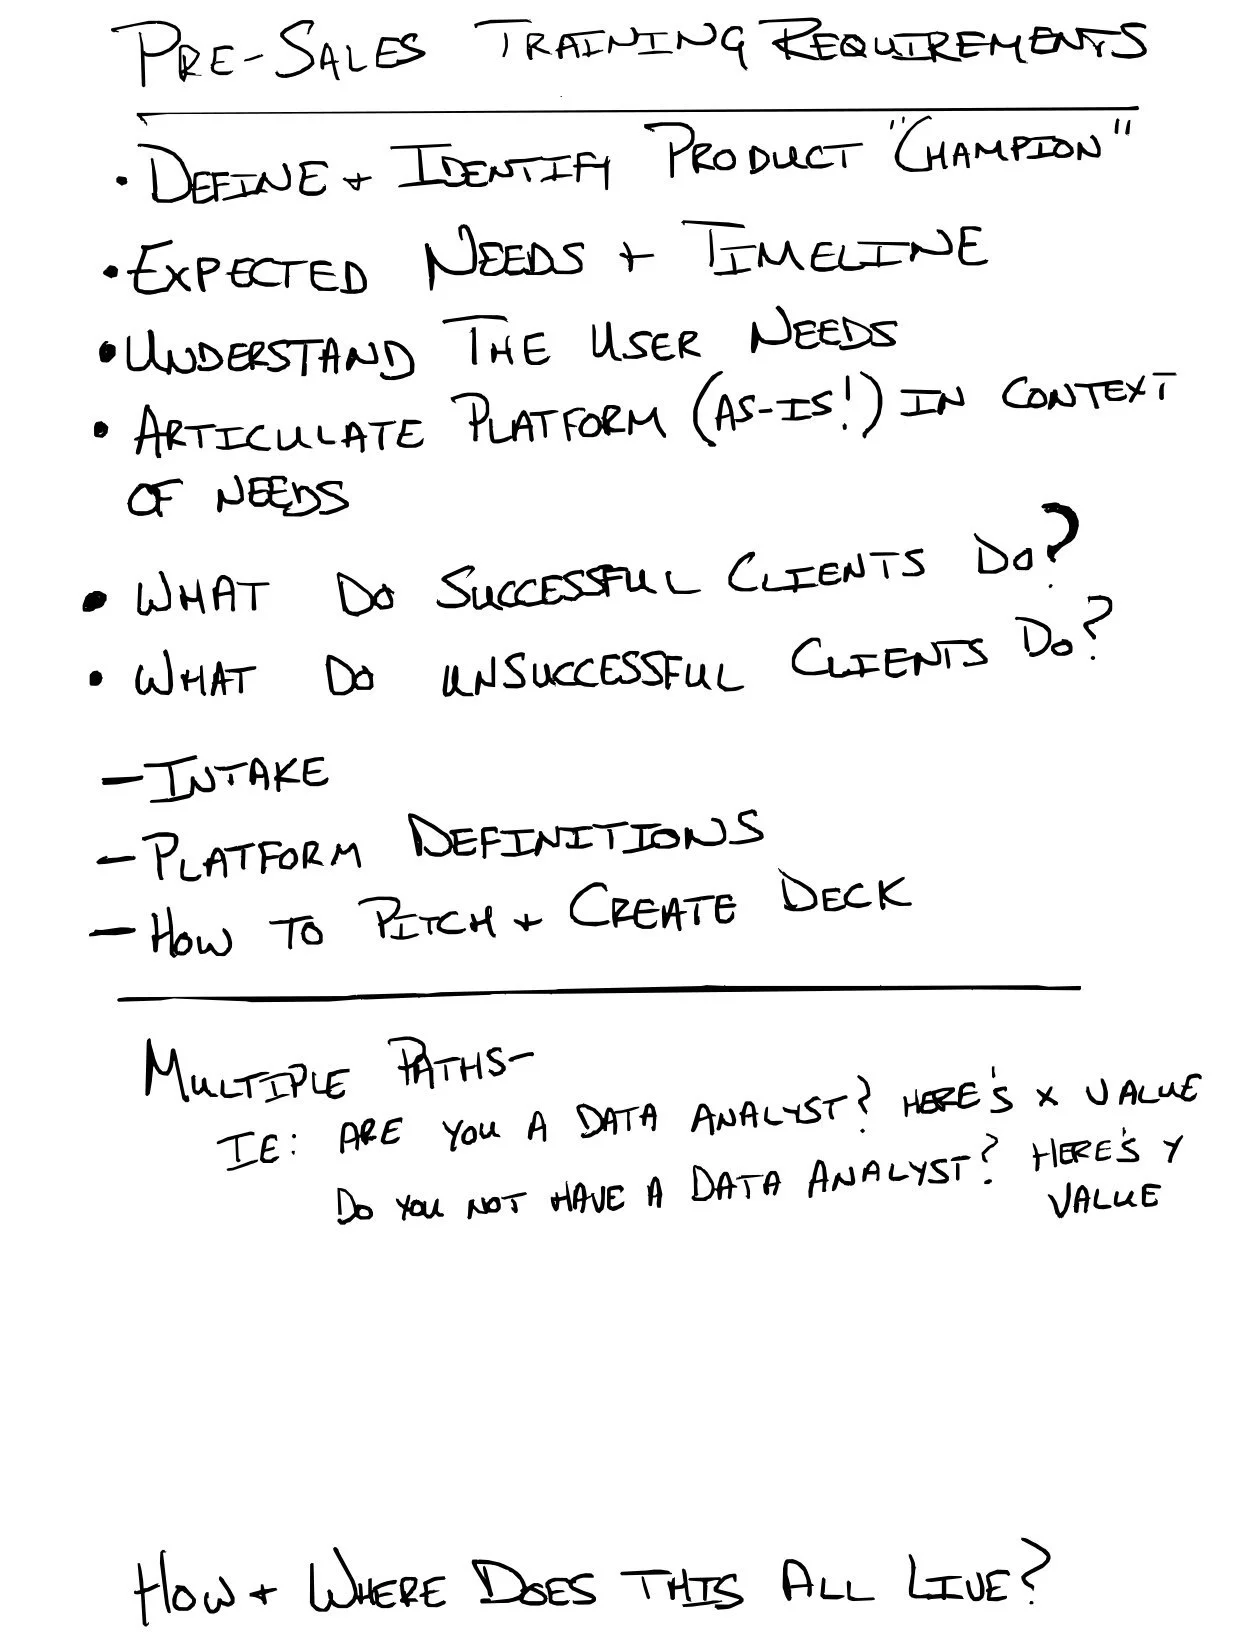 PRE-SALES TRAINING REQUIREMENTS
• DEFINE + IDENTIFY PRODUCT "CHAMPION"
• EXPECTED NEEDS + TIMELINE
• UNDERSTAND THE USER NEEDS
• ARTICULATE PLATFORM (AS-IS!) IN CONTEXT
OF NEEDS
• WHAT DO SUCCESSFUL CLIENTS DO?
• WHAT DO UNSUCCESSFUL CLIENTS DO?
- INTAKE
- PLATFORM DEFINITIONS
- HOW TO PITCH + CREATE DECK
MULTIPLE PATHS-
IE: ARE YOU A DATA ANALYST? HERE'S X VALUE
DO YOU NOT HAVE A DATA ANALYST? HERE'S Y
VALUE
HOW + WHERE DOES THIS ALL LIVE?